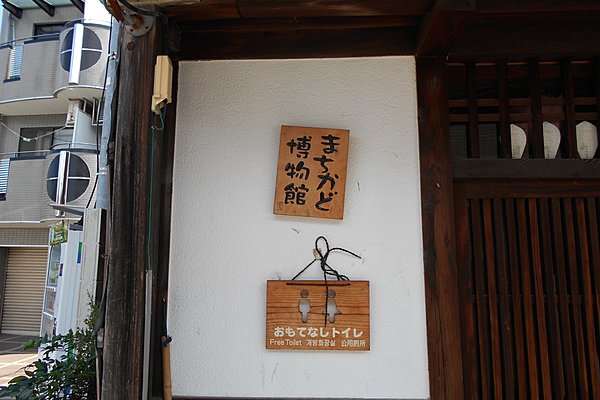 まちかど
博物館
おもてなしトイレ
Free Toilet 개방화장실 公用厕所